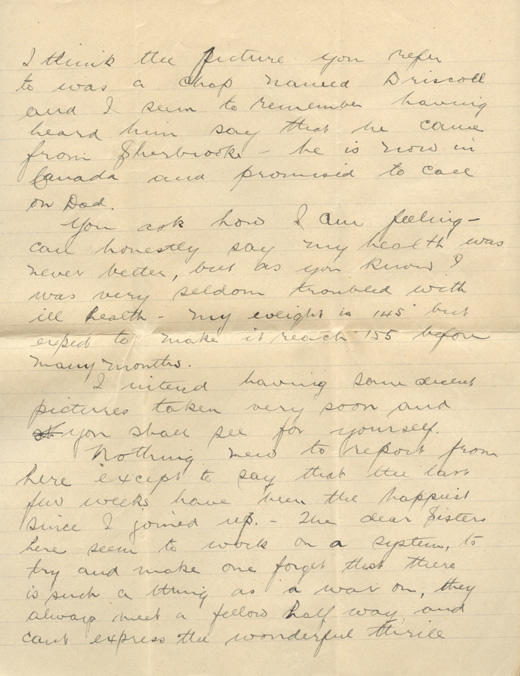 I think the picture you refer
to was a chap named Driscoll
and I seem to remember having
heard him say that he came
from Sherbrooke - he is now in
Canada and promised to call
on Dad.
You ask how I am feeling -
can honestly say my health was
never better, but as you know I
was very seldom troubled with
ill health - my weight is 145 but
expect to make it reach 155 before
many months.
I intend having some decent
pictures taken very soon and
you shall see for yourself.
Nothing new to report from
here except to say that the last
few weeks have been the happiest
since I joined up. - The dear Sisters
here seem to work on a system, to
try and make one forget that there
is such a thing as a war on, they
always meet a fellow half way, and
cant express the wonderful thrill